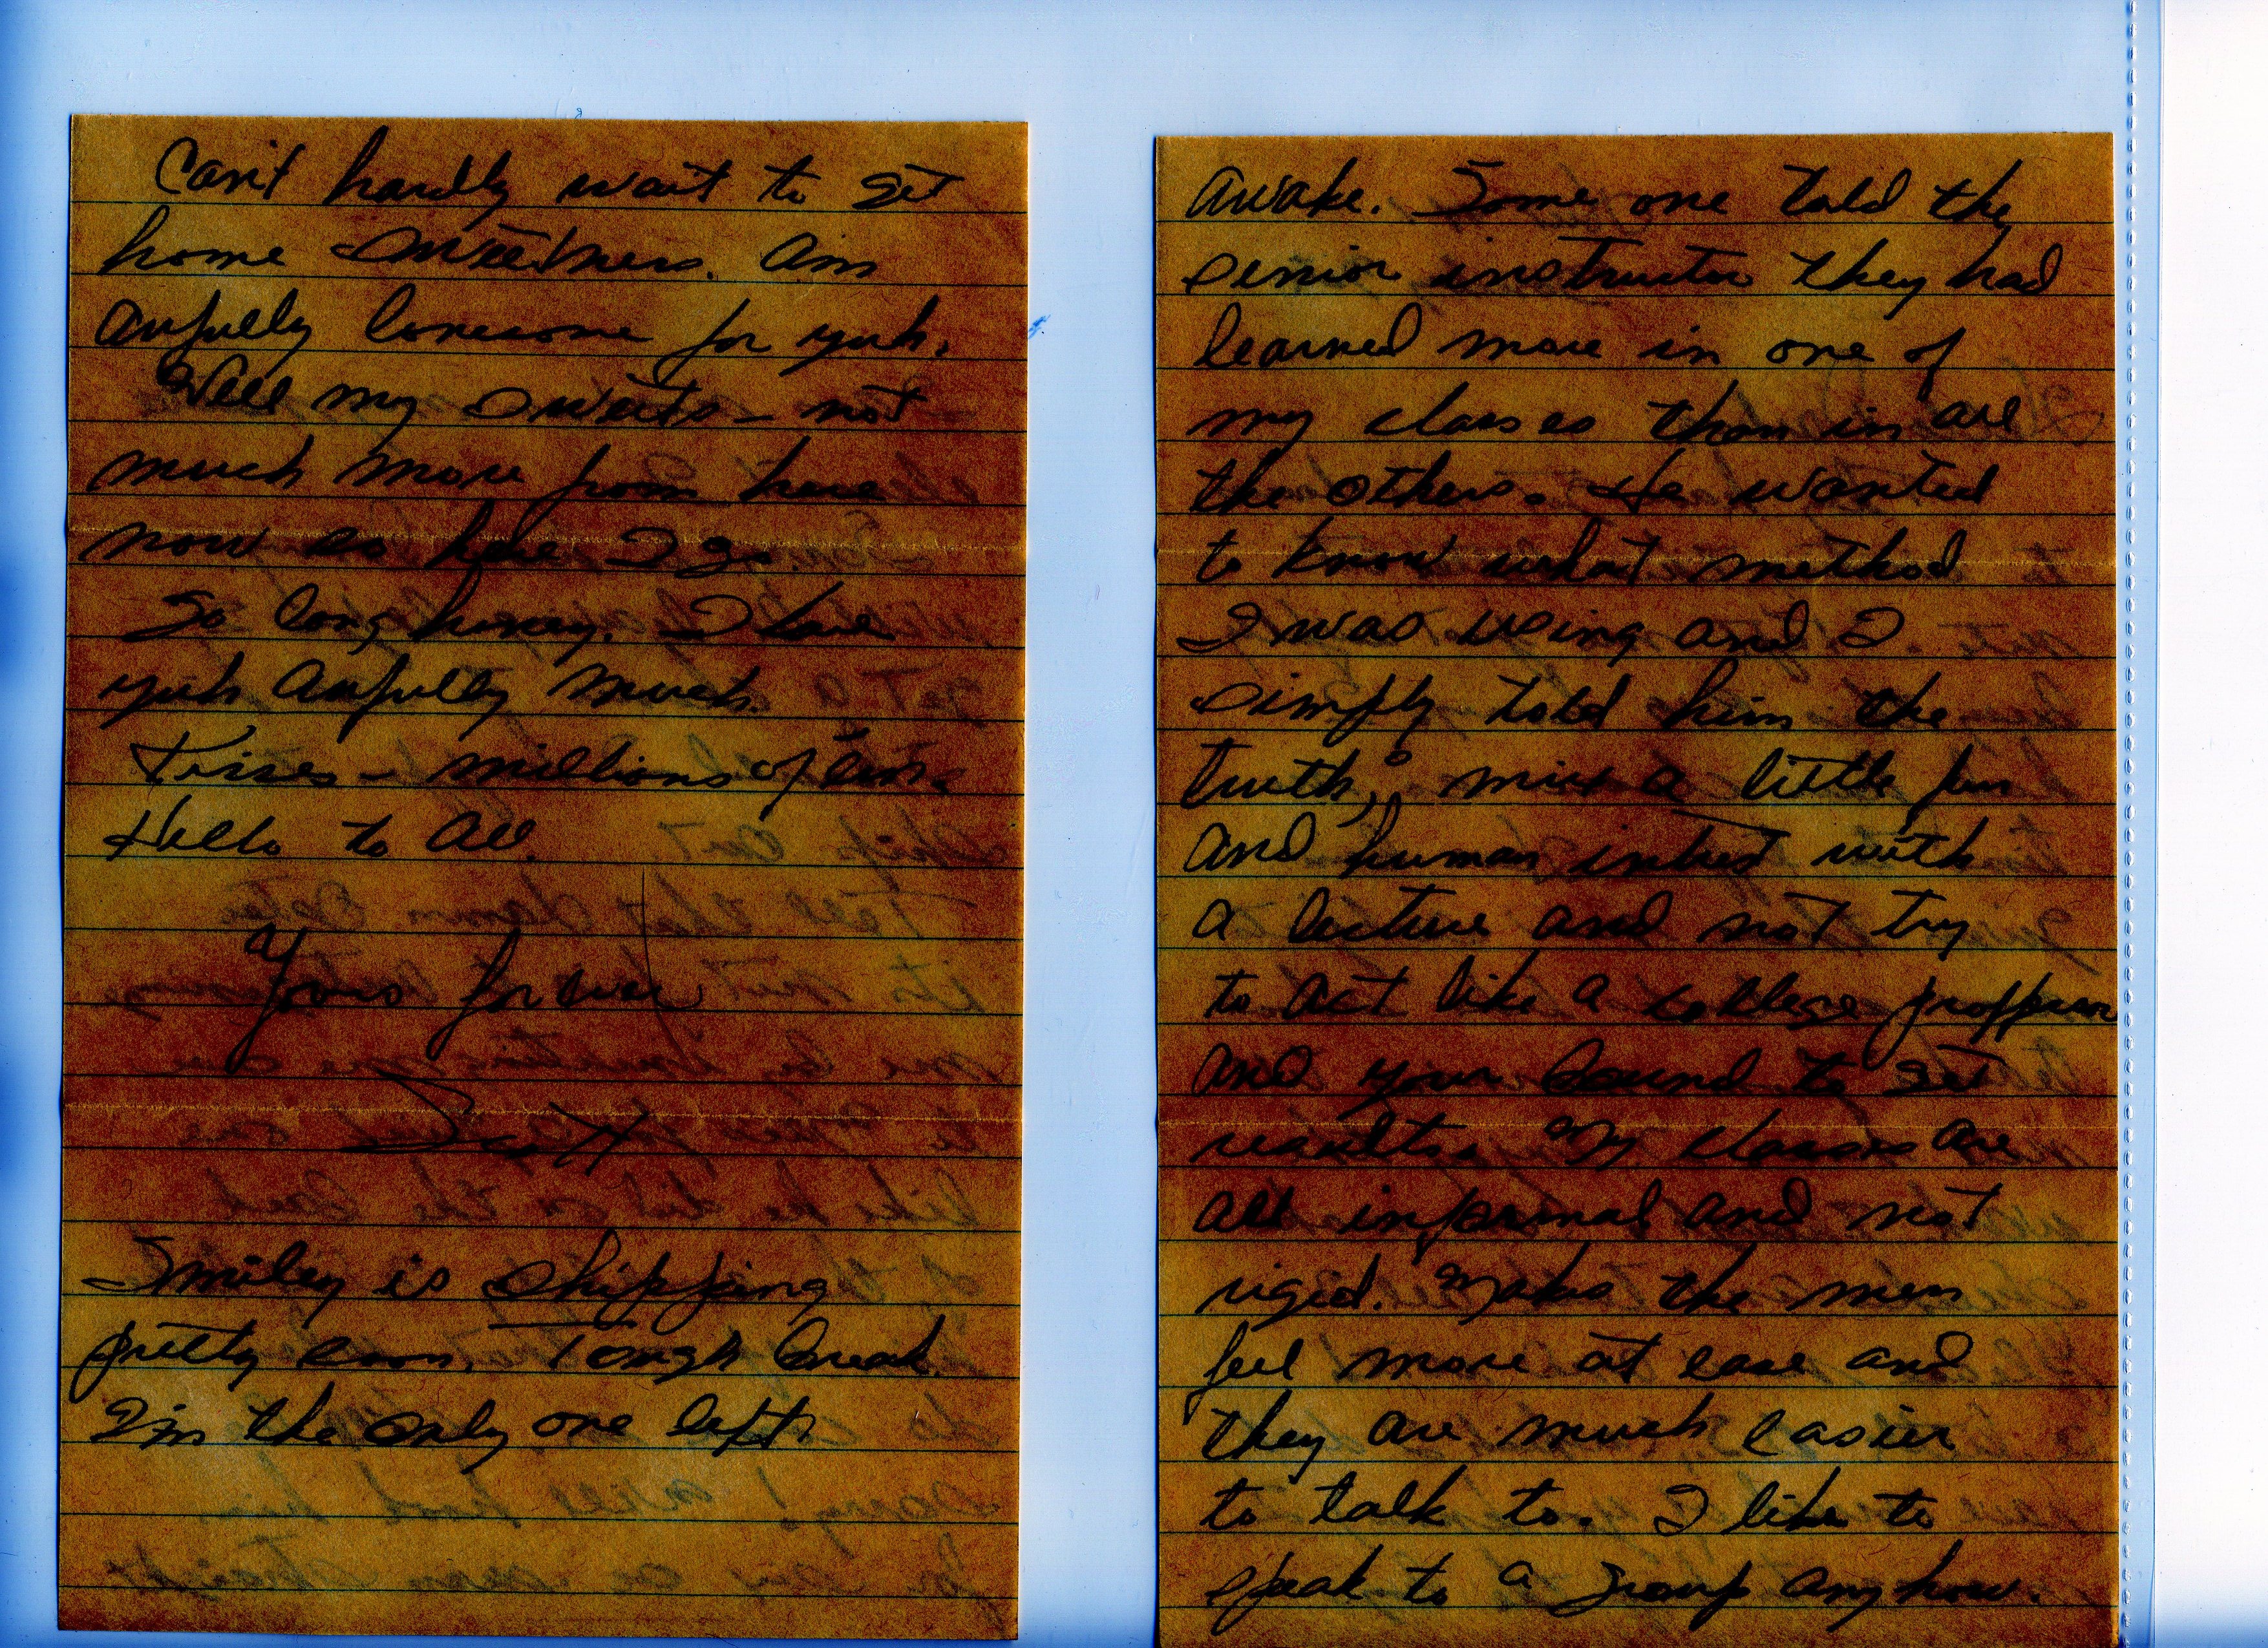 Can't hardly wait to get
home Sweetness. Am
awfully lonesome for yuh.
Well my Sweets - not
much more from here
now so here I go
So long honey. I love
yuh awfully much.
Kisses - millions of 'em.
Hello to All.
Yours forever
Smiley is shipping
pretty soon. Tough break.
I'm the only one left
awake. Some one told the
senior instructor they had
learned more in one of
my classes than in all
the others. He wanted
to know what method
I was using and I
simply told him the
truth; mix a little fun
and human intrest with
a lecture and not try
to act like a college
and your bound to get
results. My classes are
all informal and not
rigid. Makes the men
feel more at ease and
they are much easier
to talk to. I like to
speak to a group anyhow.